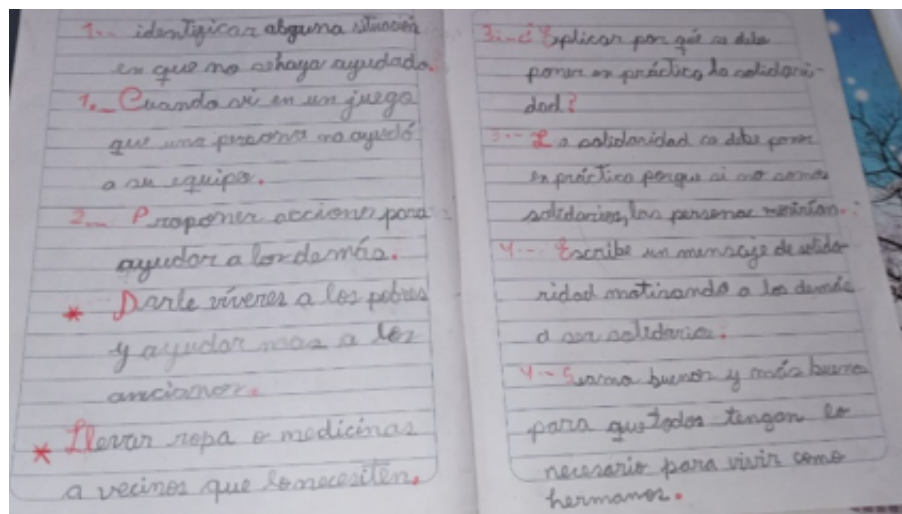 1.- identificar alguna situación
en que no se haya ayudado.
1.- Cuando vi en un juego
que una persona no ayudó
a su equipo.
2.- Proponer acciones para
ayudar a los demás.
* Darle víveres a los pobres
y ayudar mas a los
ancianos.
* Llevar ropa o medicinas
a vecinos que lo necesiten.
3.- ¿Explicar por qué se debe
poner en práctica la solidari-
dad?
3.- La solidaridad se debe poner
en práctica porque si no somos
solidarios, las personas morirían.
4.- Escribe un mensaje de solida
ridad motivando a los demás
a ser solidarios.
4.- Seamo buenos y más buenos
para que todos tengan lo
necesario para vivir como
hermanos.